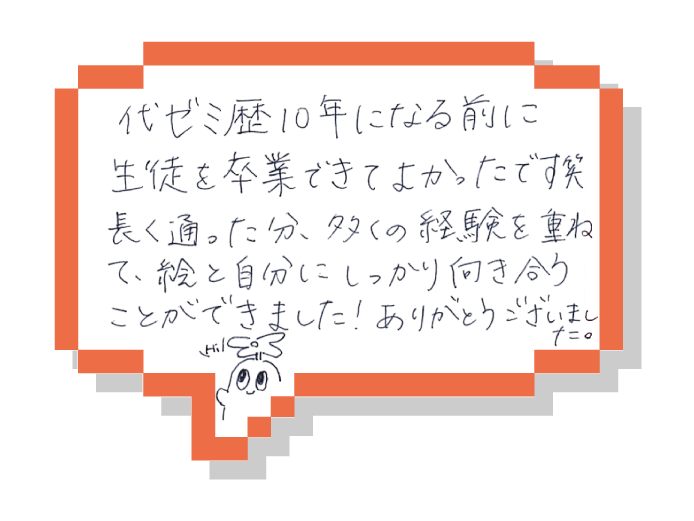 代ゼミ歴10年になる前に
生徒を卒業できてよかったです笑
長く通った分、多くの経験を重ね
て、絵と自分にしっかり向き合う
ことができました！ありがとうございまし
た。
Hi!